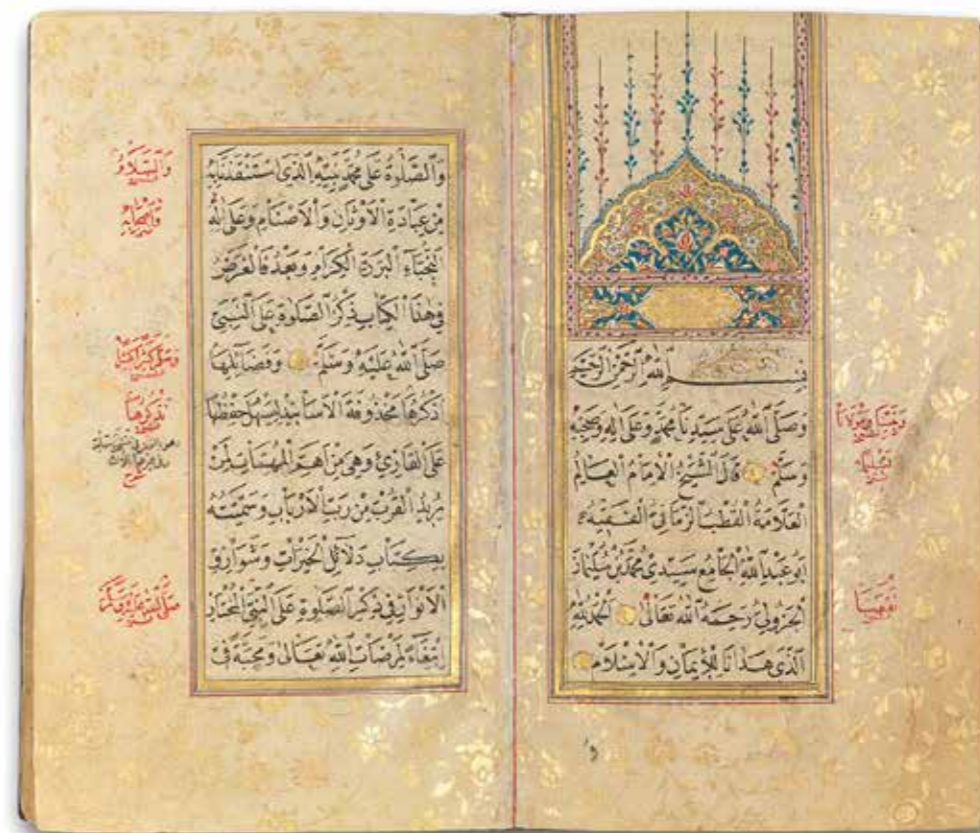 بسم الله الرحمن الرحيم
وَصَلَّى اللهُ عَلَى سَيِّدِنَا مُحَمَّدٍ وَعَلَى اٰلِهِ وَصَحْبِهِ
وَسَلَّمَ قَالَ الشَّيْخُ الْاِمَامُ الْعَالِمُ
الْعَلَّامَةُ الْقُطْبُ الزَّمَانِيُّ الْفَقِيهُ
اَبُو عَبْدِ اللهِ الْجَامِعُ سَيِّدِي مُحَمَّدُ بْنُ سُلَيْمَانَ
الْجَزُولِيُّ رَحِمَهُ اللهُ تَعَالٰى اَلْحَمْدُ لِلّٰهِ
الَّذِي هَدَانَا لِلْاِيمَانِ وَالْاِسْلَامِ
وَالصَّلٰوةُ عَلَى مُحَمَّدٍ نَبِيِّهِ الَّذِي اسْتَنْقَذَنَا بِهِ
مِنْ عِبَادَةِ الْاَوْثَانِ وَالْاَصْنَامِ وَعَلَى اٰلِهِ
النُّجَبَاءِ الْبَرَرَةِ الْكِرَامِ وَبَعْدُ فَالْغَرَضُ
فِي هٰذَا الْكِتَابِ ذِكْرُ الصَّلٰوةِ عَلَى النَّبِيِّ
صَلَّى اللهُ عَلَيْهِ وَسَلَّمَ وَفَضَائِلِهَا
نَذْكُرُهَا مَحْذُوفَةَ الْاَسَانِيدِ لِيَسْهُلَ حِفْظُهَا
عَلَى الْقَارِئِ وَهِيَ مِنْ اَهَمِّ الْمُهِمَّاتِ لِمَنْ
يُرِيدُ الْقُرْبَ مِنْ رَبِّ الْاَرْبَابِ وَسَمَّيْتُهُ
بِكِتَابِ دَلَائِلِ الْخَيْرَاتِ وَشَوَارِقِ
الْاَنْوَارِ فِي ذِكْرِ الصَّلٰوةِ عَلَى النَّبِيِّ الْمُخْتَارِ
اِبْتِغَاءً لِمَرْضَاتِ اللهِ تَعَالٰى وَمَحَبَّةً فِي
وَالسَّلَامُ
وَاَصْحَابِهِ
نَذْكُرُهَا